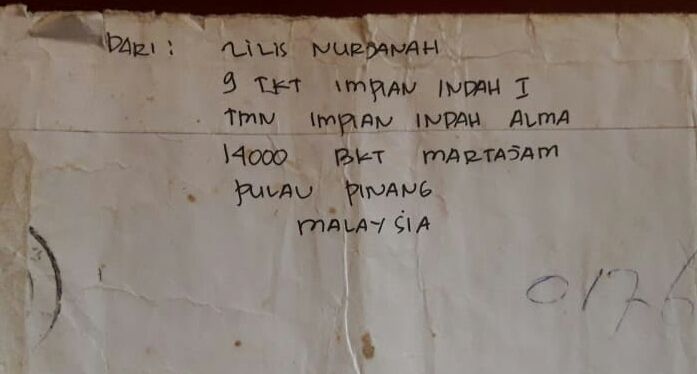 DARI: LILIS NURDANAH
9 TKT IMPIAN INDAH I
TMN IMPIAN INDAH ALMA
14000 BKT MARTAJAM
PULAU PINANG
MALAYSIA
0176